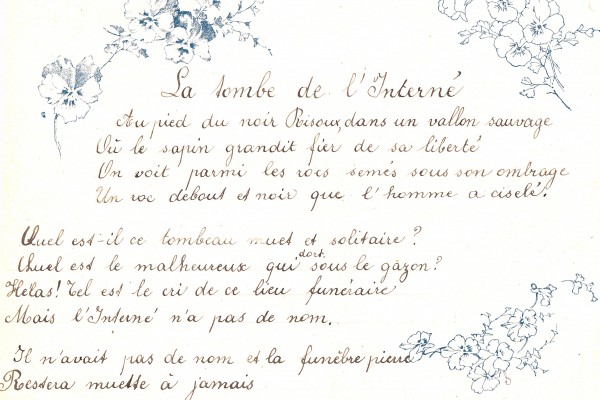 La tombe de l'Interné
Au pied du noir Risoux, dans un vallon sauvage
Où le sapin grandit fier de sa liberté
On voit parmi les rocs semés sous son ombrage
Un roc debout et noir que l'homme a ciselé.
Quel est-il ce tombeau muet et solitaire?
Quel est le malheureux qui dort sous le gazon?
Helas! Tel est le cri de ce lieu funéraire
Mais l'Interné n'a pas de nom.
Il n'avait pas de nom et la funèbre pierre
Restera muette à jamais